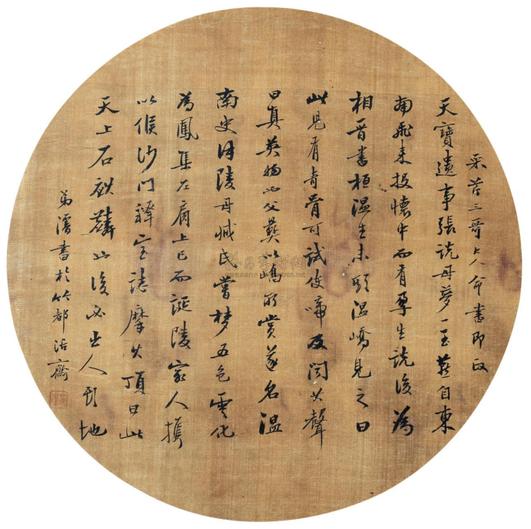 采三哥大人命書即政
天寶遺事張說母夢一玉燕自東
南飛來投懷中而有孕生說後為
相晉書桓溫生未期溫嶠見之曰
此兒有奇骨可試使啼及聞其聲
曰真英物也父彝以嶠所賞遂名溫
南史徐陵母臧氏嘗夢五色雲化
為鳳集左肩上已而誕陵家人攜
以候沙門釋寶誌摩其頂曰此
天上石麒麟也後必出人頭地
弟書於都齋